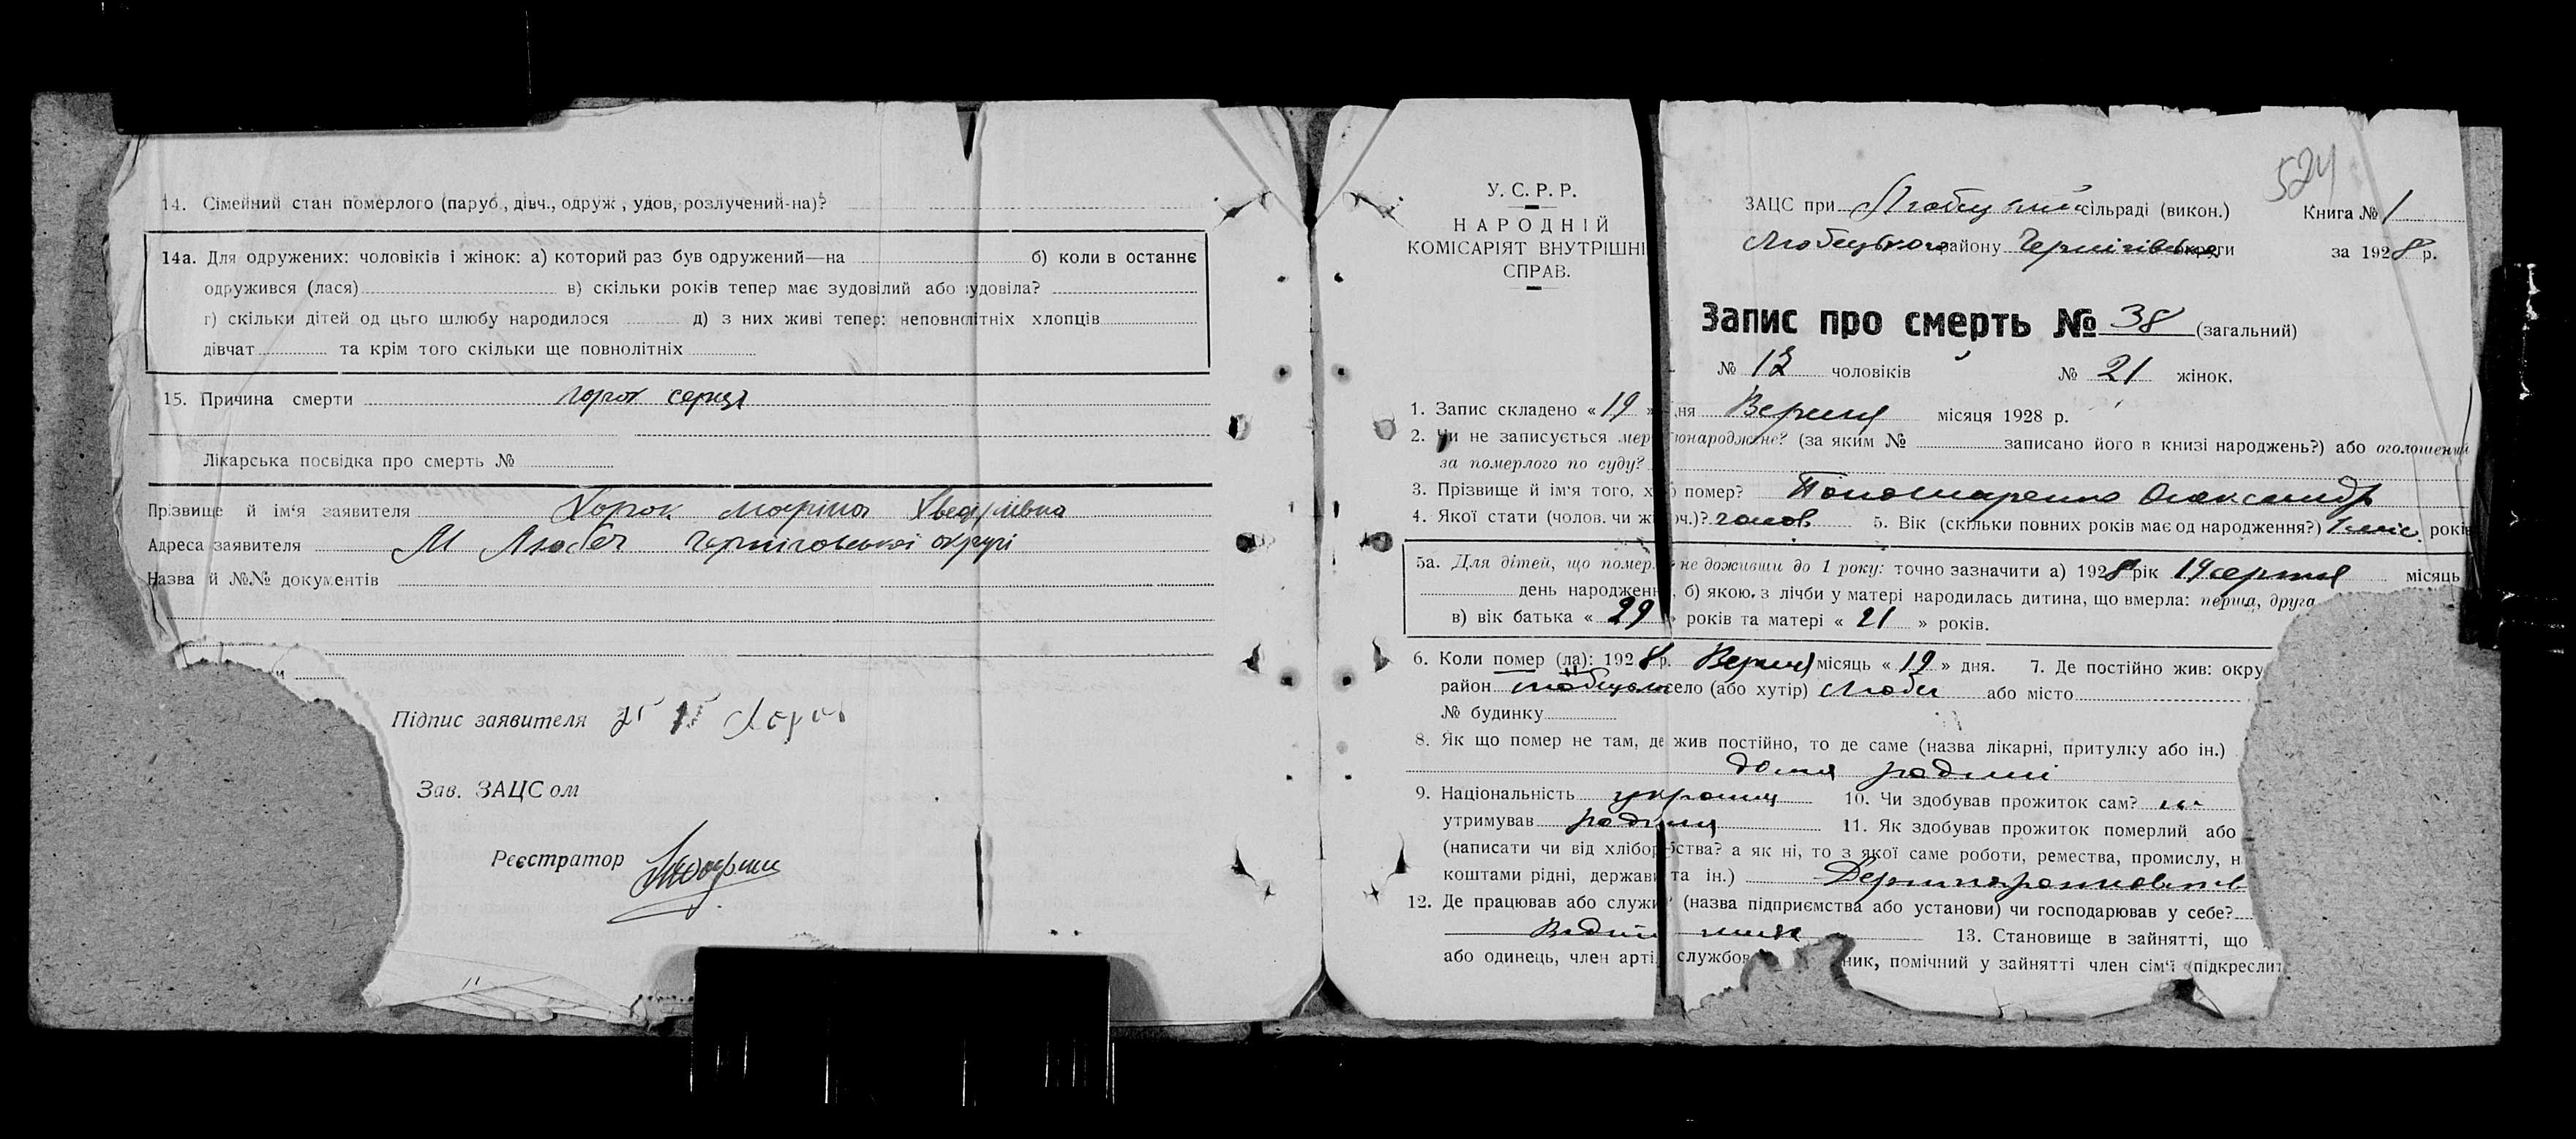 14. Сімейний стан померлого (паруб., дівч., одруж., удов, розлучений-на)?
14а. Для одружених: чоловіків і жінок: а) которий раз був одружений—на б) коли в останнє
одружився (лася) в) скільки років тепер має зудовілий або удовіла?
г) скільки дітей од цього шлюбу народилося д) з них живі тепер: неповнолітніх хлопців
дівчат та крім того скільки ще повнолітніх
15. Причина смерти порок серця
Лікарська посвідка про смерть №
Прізвище й ім'я заявителя Хорок Маріна Хведірівна
Адреса заявителя М Любеч Черніговської округі
Назва й №№ документів
Підпис заявителя
Зав. ЗАЦСом
Реєстратор
524
У. С. Р. Р.
НАРОДНІЙ
КОМІСАРІЯТ ВНУТРІШНІ
СПРАВ.
ЗАЦС при Любецький сільраді (викон.) Книга № 1
Любецького району Чернігівської округи за 1928 р.
Запис про смерть № 38 (загальний)
№ чоловіків № 21 жінок.
1. Запис складено «19» дня Вересня місяця 1928 р.
2. Чи не записується мертвонароджене? (за яким № записано його в книзі народжень?) або оголошений
за померлого по суду?
3. Прізвище й ім'я того, хто помер? Пономаренко Олександр
4. Якої стати (чолов. чи жіноч.)? чолов. 5. Вік (скільки повних років має од народження?) 1 міс. років
5а. Для дітей, що померли не доживши до 1 року: точно зазначити а) 1928 рік 19 серпня місяць
день народження, б) якою з лічби у матері народилась дитина, що вмерла: перша, друга
в) вік батька «29» років та матері «21» років.
6. Коли помер (ла): 1928 р. Вересня місяць «19» дня. 7. Де постійно жив: окру
район Любецький село (або хутір) Любеч або місто
№ будинку
8. Як що помер не там, де жив постійно, то де саме (назва лікарні, притулку або ін.)
дома родині
9. Національність українец 10. Чи здобував прожиток сам? ні
утримував родина 11. Як здобував прожиток померлий або
(написати чи від хліборобства? а як ні, то з якої саме роботи, ремества, промислу, н
коштами рідні, держави та ін.)
12. Де працював або служив (назва підприємства або установи) чи господарював у себе?
13. Становище в зайнятті, що
або одинець, член арті службов ник, помічний у зайнятті член сім'ї (підкреслит